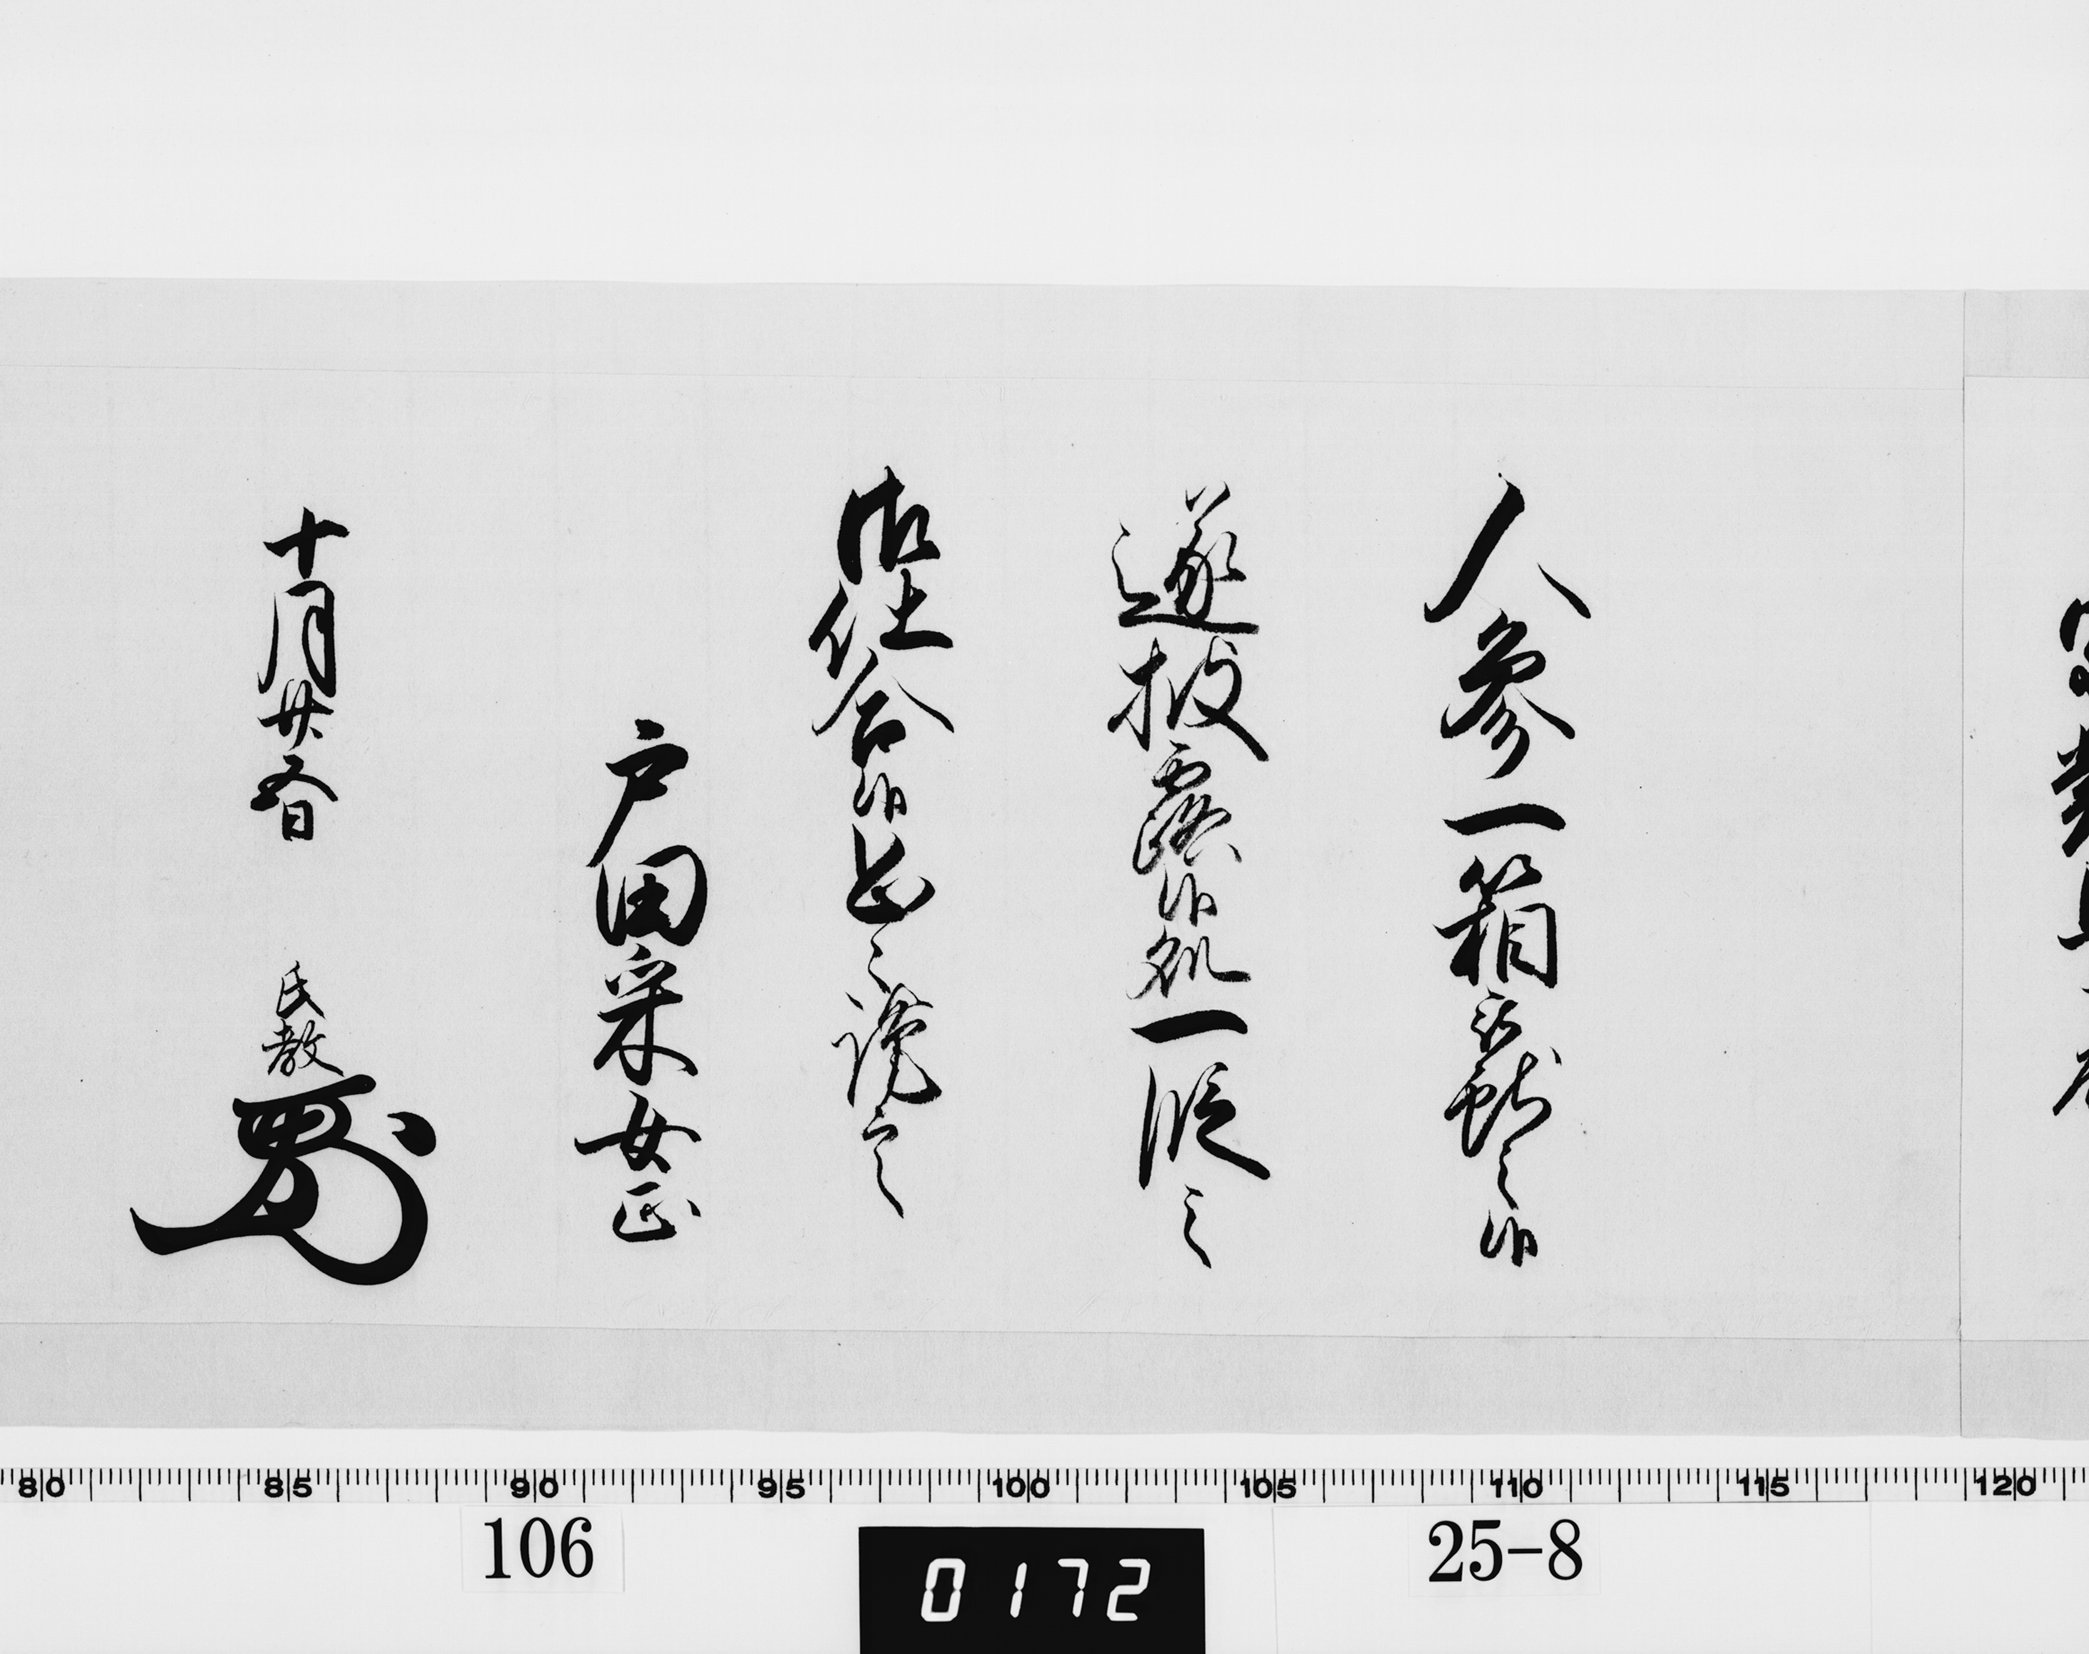 人参一箱被献之候
遂披露候処一段之
御仕合候恐々謹言
戸田采女正
十月廿五日 氏教
80 85 90 95 100 105 110 115 120
106
0172
25-8